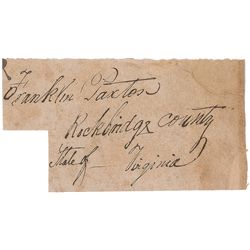 Franklin Paxton
Rockbridge County
State of Virginia